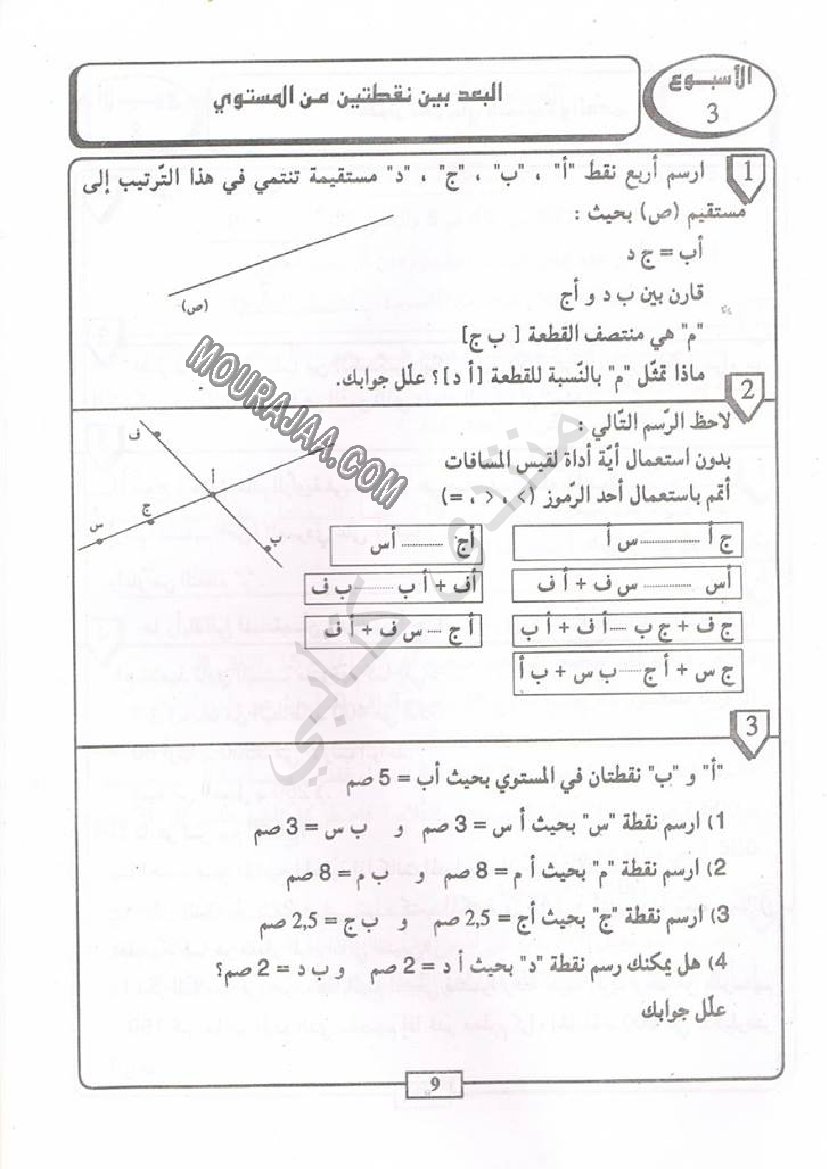 الأسبوع
3
البعد بين نقطتين من المستوي
1
ارسم أربع نقط "أ" ، "ب" ، "ج" ، "د" مستقيمة تنتمي في هذا التّرتيب إلى
مستقيم (ص) بحيث :
أب = ج د
قارن بين ب د و أج
"م" هي منتصف القطعة [ ب ج]
ماذا تمثّل "م" بالنّسبة للقطعة [أ د] ؟ علّل جوابك.
(ص)
MOURAJAA.COM
منتدى كتابي
2
لاحظ الرّسم التّالي :
بدون استعمال أيّة أداة لقيس المسافات
أتمم باستعمال أحد الرّموز (> ، < ، =)
ف
أ
ج
س
ب
ج أ ............... س أ
أج ............ أس
أس ............ س ف + أ ف
أف + أ ب ......... ب ف
ج ف + ج ب ..... أ ف + أ ب
أ ج ..... س ف + أ ف
ج س + أ ج ...... ب س + ب أ
3
"أ" و "ب" نقطتان في المستوي بحيث أب = 5 صم
1) ارسم نقطة "س" بحيث أ س = 3 صم و ب س = 3 صم
2) ارسم نقطة "م" بحيث أ م = 8 صم و ب م = 8 صم
3) ارسم نقطة "ج" بحيث أج = 2,5 صم و ب ج = 2,5 صم
4) هل يمكنك رسم نقطة "د" بحيث أ د = 2 صم و ب د = 2 صم؟
علّل جوابك
9